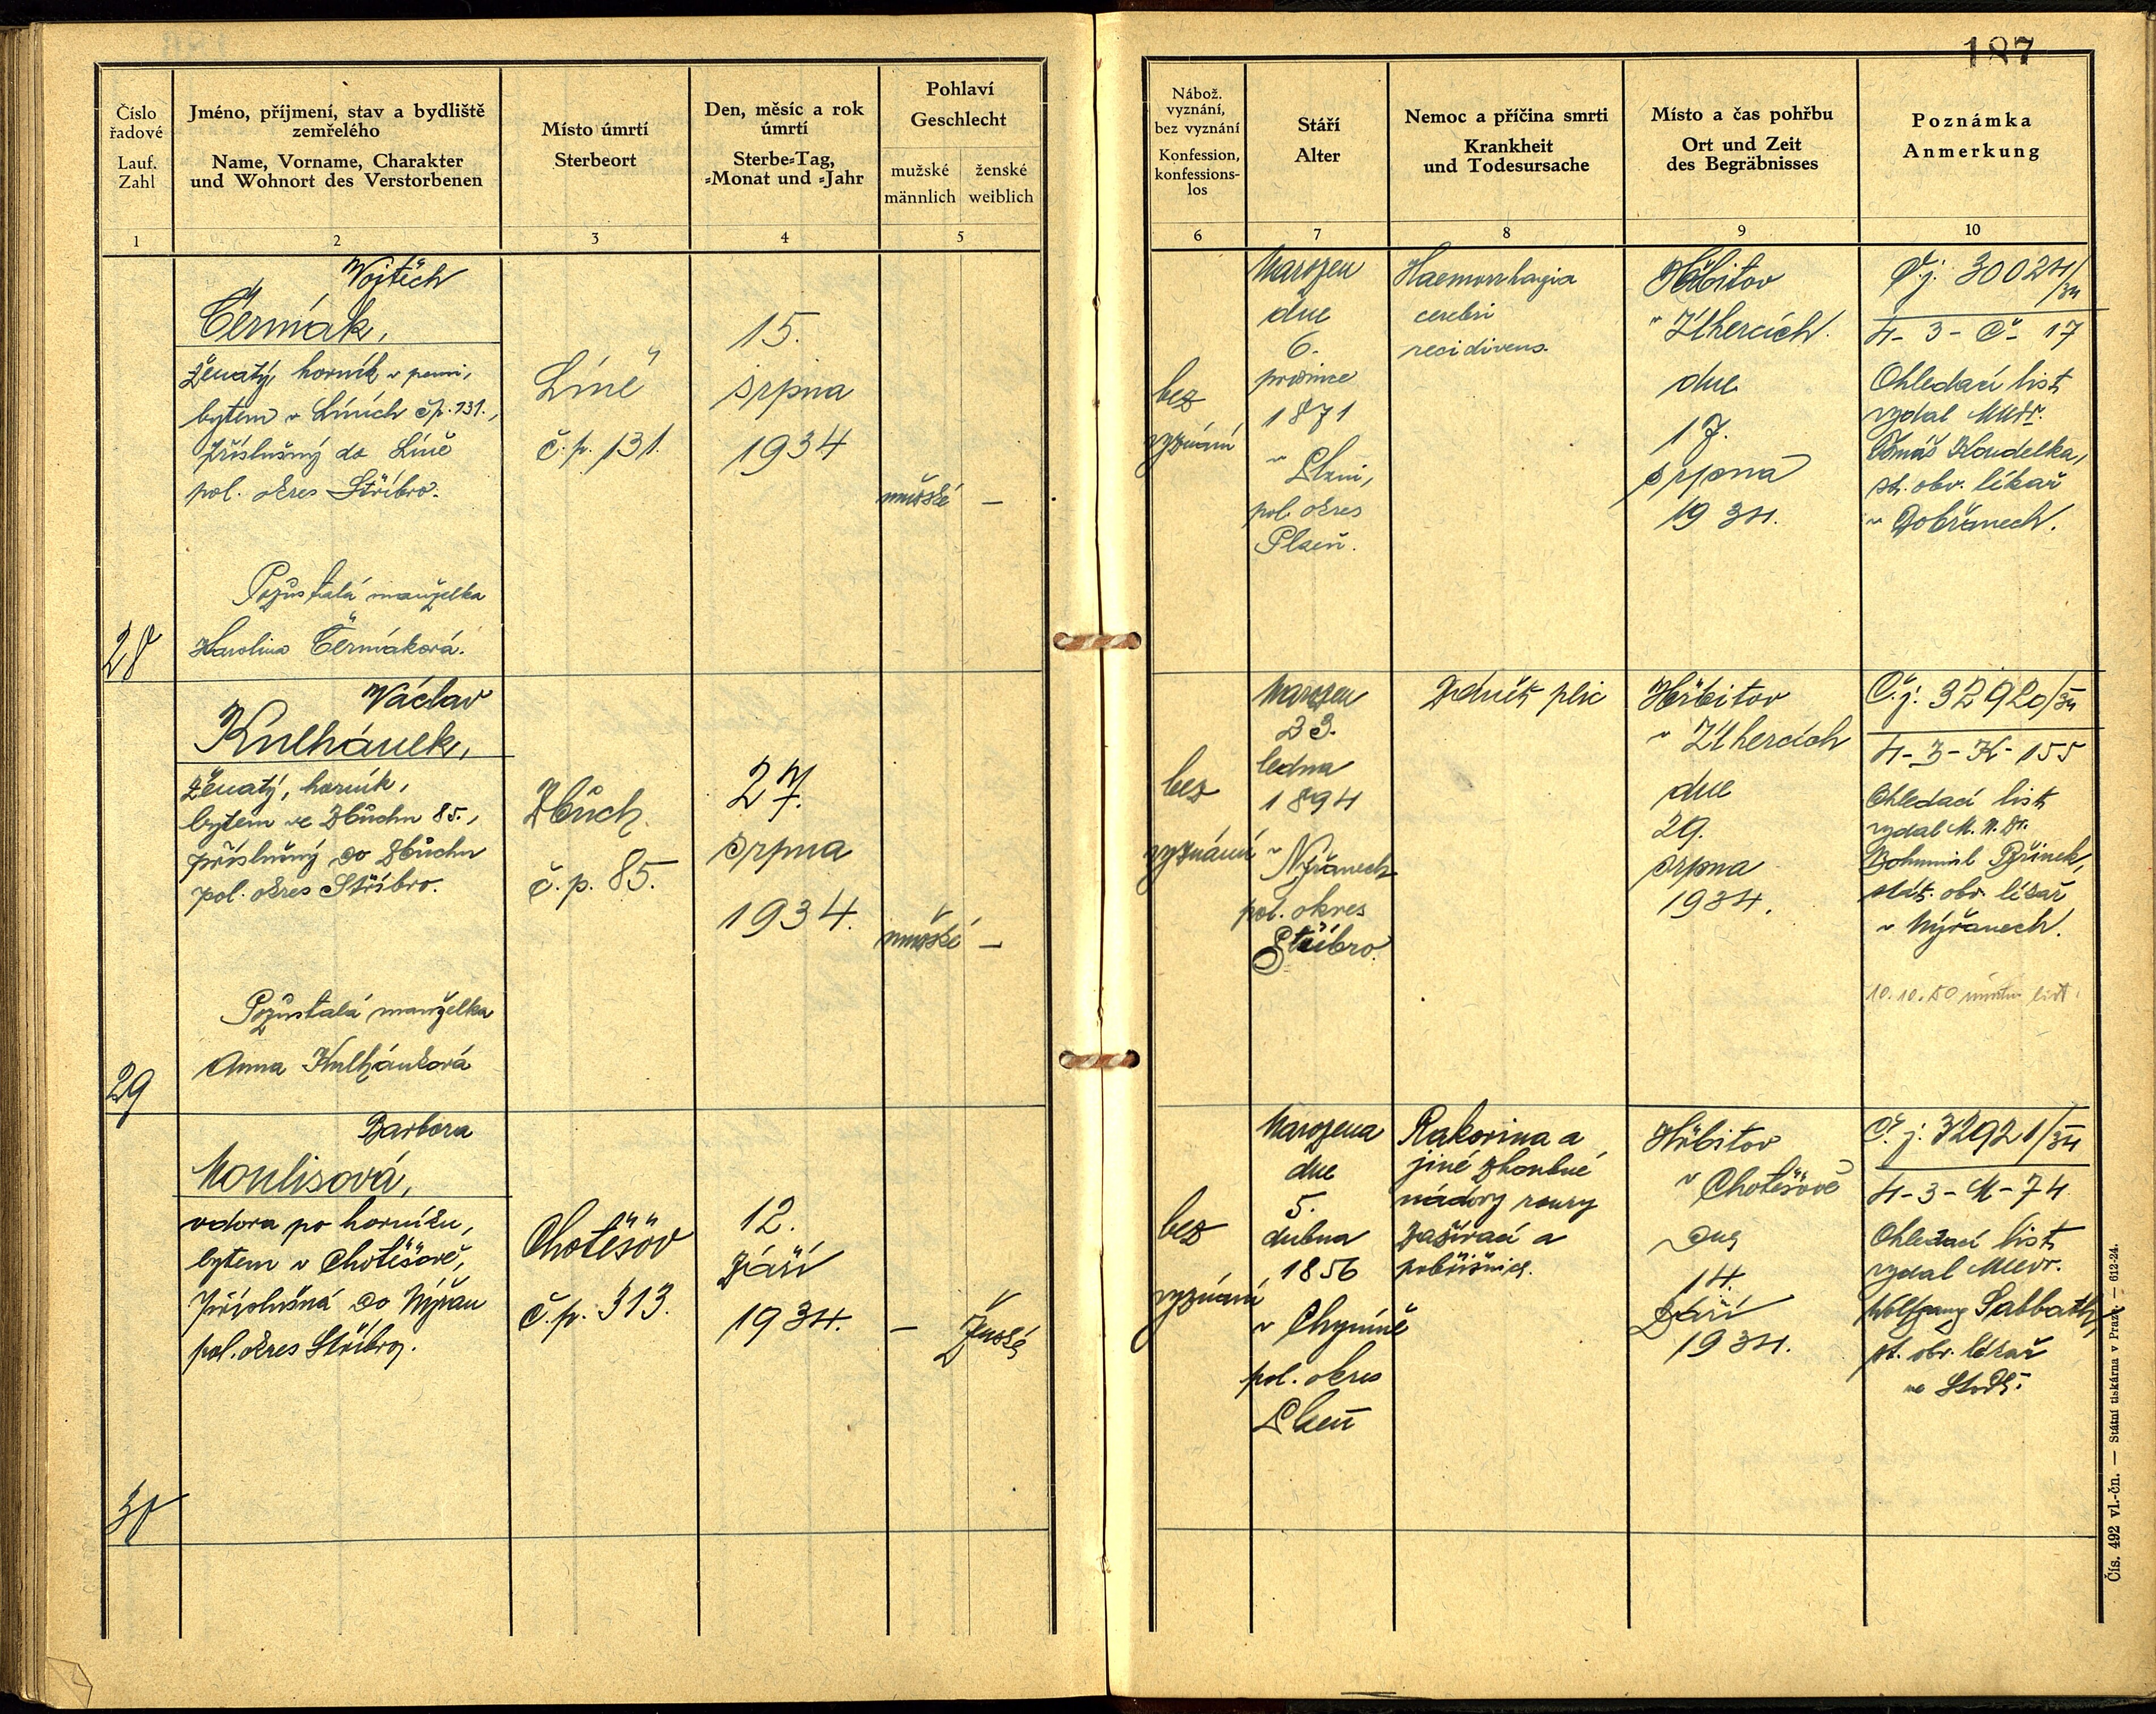 187
Číslo
řadové
Lauf.
Zahl
Jméno, příjmení, stav a bydliště
zemřelého
Name, Vorname, Charakter
und Wohnort des Verstorbenen
Místo úmrtí
Sterbeort
Den, měsíc a rok
úmrtí
Sterbe=Tag,
=Monat und =Jahr
Pohlaví
Geschlecht
mužské
männlich
ženské
weiblich
Nábož.
vyznání,
bez vyznání
Konfession,
konfessions-
los
Stáří
Alter
Nemoc a příčina smrti
Krankheit
und Todesursache
Místo a čas pohřbu
Ort und Zeit
des Begräbnisses
Poznámka
Anmerkung
1
2
3
4
5
6
7
8
9
10
28
Vojtěch
Čermák,
ženatý, horník v pensi,
bytem v Líních čp. 131.,
Příslušný do Líně
pol. okres Stříbro.
Pozůstalá manželka
Karolina Čermáková.
Líně
č. p. 131.
15.
srpna
1934
mužské —
bez
vyznání
Narozen
dne
6.
prosince
1871
v Plzni,
pol. okres
Plzeň.
Haemorrhagia
cerebri
recidivens.
Hřbitov
v Úhercích.
dne
17.
srpna
1934.
Č. j. 30024/34
4-3-Č-17
Ohledací list
vydal MUDr.
Tomáš Koudelka,
st. obv. lékař
v Dobřanech.
29
Václav
Kulhánek,
ženatý, horník,
bytem ve Zbůchu 85.,
příslušný do Zbůchu
pol. okres Stříbro.
Pozůstalá manželka
Anna Kulhánková
Zbůch
č. p. 85.
27.
srpna
1934.
mužské —
bez
vyznání
Narozen
23.
ledna
1894
v Nýřanech
pol. okres
Stříbro.
Zánět plic
Hřbitov
v Úhercích
dne
29.
srpna
1934.
Č. j. 32920/34
4-3-K-155
Ohledací list
vydal M. U. Dr.
Bohumil
stát. obv. lékař
v Nýřanech.
10.10.50 úmrtní list.
30
Barbora
Moulisová,
vdova po horníku,
bytem v Chotěšově,
Příslušná do Nýřan
pol. okres Stříbro.
Chotěšov
č. p. 313.
12.
září
1934.
— ženské
bez
vyznání
Narozena
dne
5.
dubna
1856
v Chyníně
pol. okres
Plzeň
Rakovina a
jiné zhoubné
nádory roury
zažívací a
pobřišnice.
Hřbitov
v Chotěšově
dne
14.
září
1934.
Č. j. 32921/34
4-3-M-74
Ohledací list
vydal MUDr.
Wolfgang Sabbath,
st. obv. lékař
ve Stodě.
Čís. 492 vl.-čn. — Státní tiskárna v Praze. — 612-24.